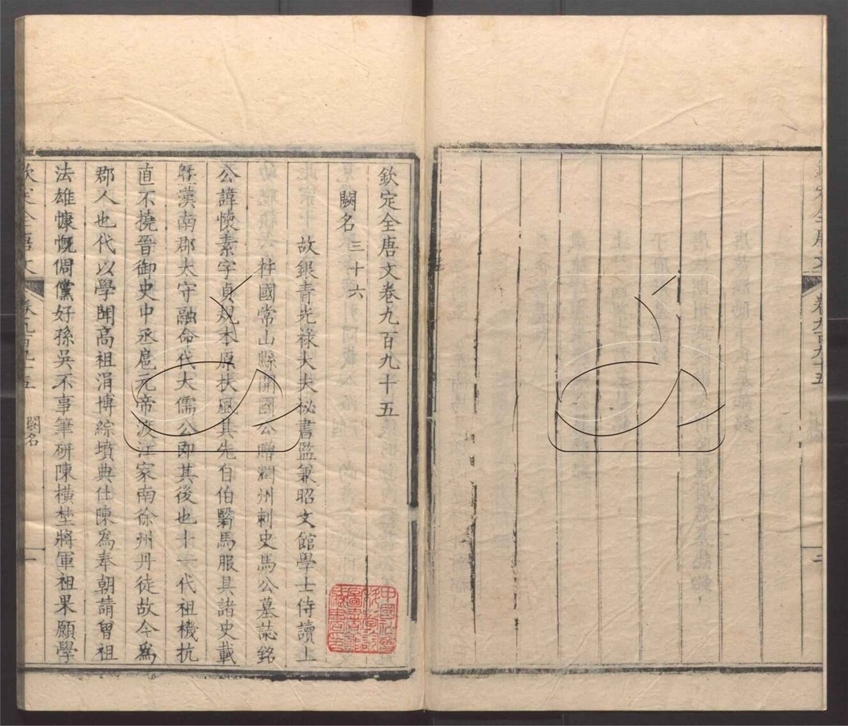 欽定全唐文卷九百九十五
闕名三十六
故銀青光祿大夫祕書監兼昭文館學士侍讀上
柱國常山縣開國公贈潤州刺史馬公墓誌銘
公諱懷素字貞規本原扶風其先自伯翳馬服具諸史載
漢南郡太守融命代大儒公即其後也十一代祖機抗
直不撓晉御史中丞扈元帝渡江家南徐州丹徒故今為
郡人也代以學聞高祖涓博綜墳典仕陳為奉朝請曾祖
法雄慷慨倜儻好孫吳不事筆研陳橫埜將軍祖果願學
欽定全唐文
卷九百九十五
闕名
一
卷九百九十五